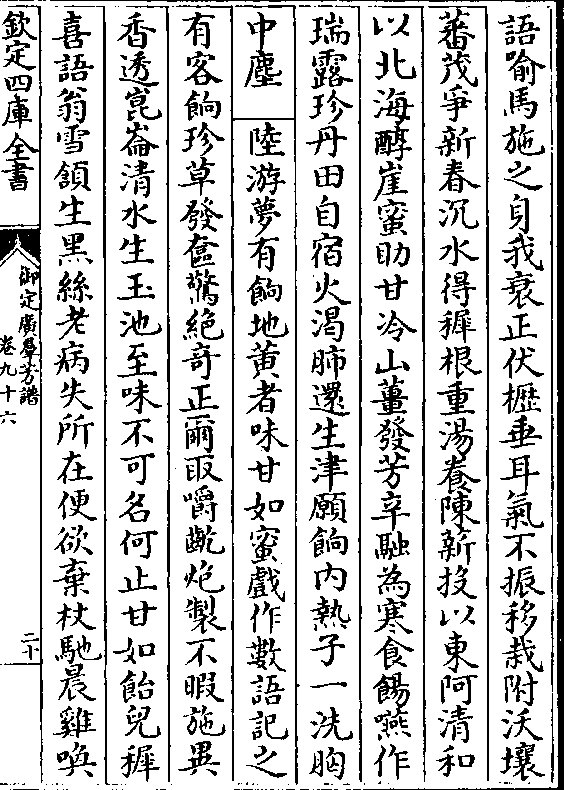 語喻馬施之身我衰正伏櫪垂耳氣不振移栽附沃壤
蕃茂爭新春沉水得穉根重湯養陳薪投以東阿清和
以北海醇崖蜜助甘冷山薑發芳辛融為寒食餳嚥作
瑞露珍丹田自宿火渴肺還生津願餉内熱子一洗胸
中塵 陸游夢有餉地黃者味甘如蜜戲作數語記之
有客餉珍草發奩驚絶竒正爾取嚼齕炮製不暇施異
香透崑崙清水生玉池至味不可名何止甘如飴兒穉
喜語翁雪頷生黑絲老病失所在便欲棄杖馳晨雞喚
欽定四庫全書
御定廣羣芳譜
卷九十六
二十